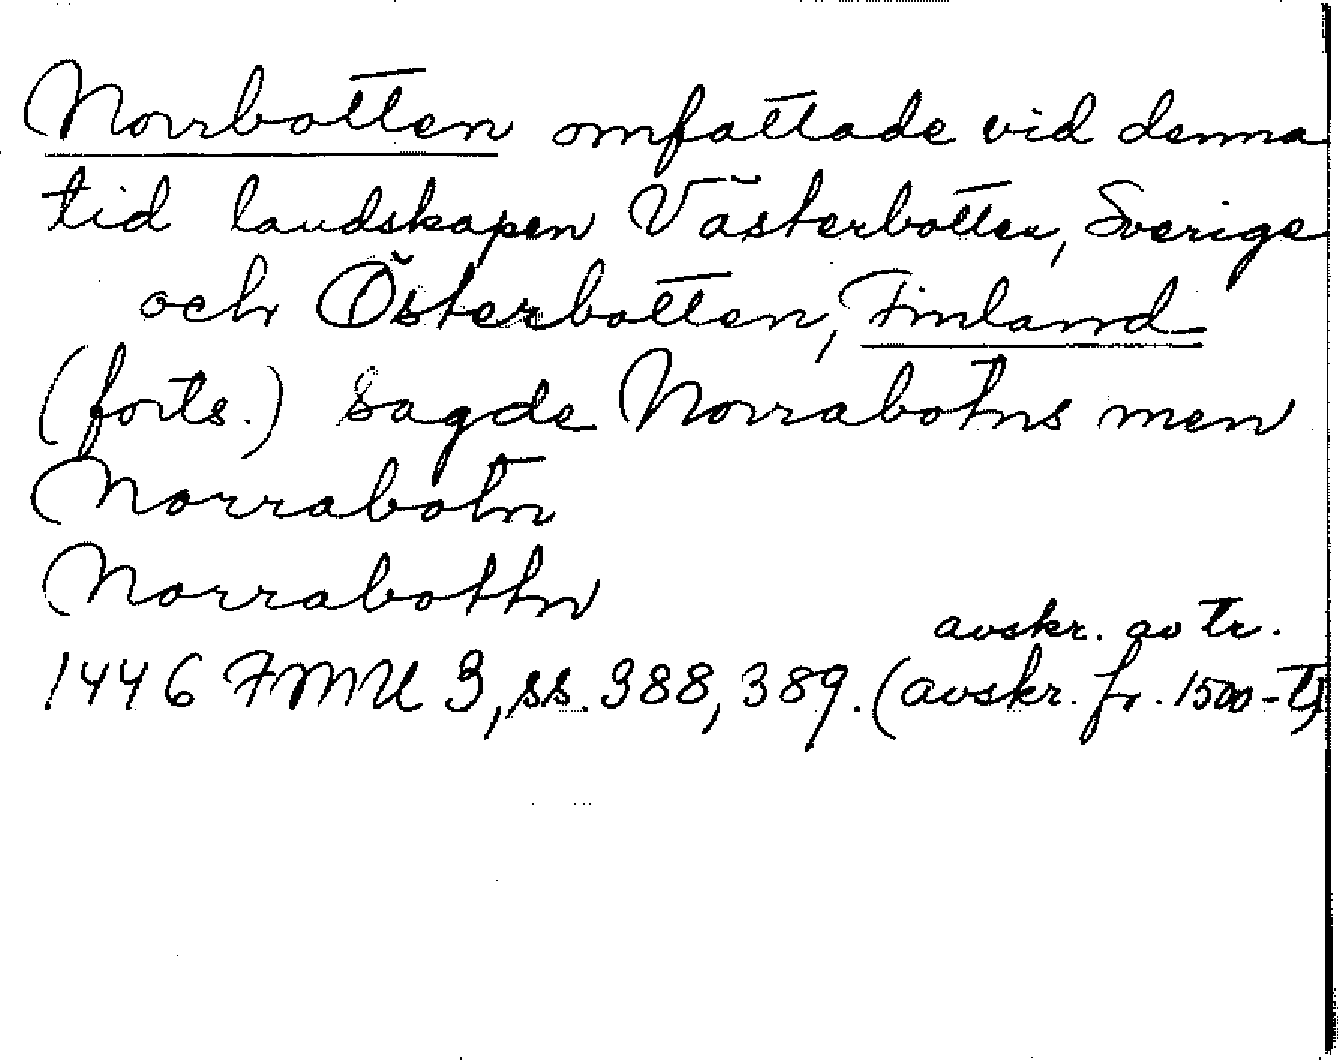 Norrbotten omfattade vid denna
tid landskapen Västerbotten, Sverige
och Österbotten, Finland
(forts.) Sagde Norrabotns men
Norrabotn
Norrabottn
avskr. av tr.
1446 FMU 3, ss. 388, 389. (avskr. fr. 1500-t)